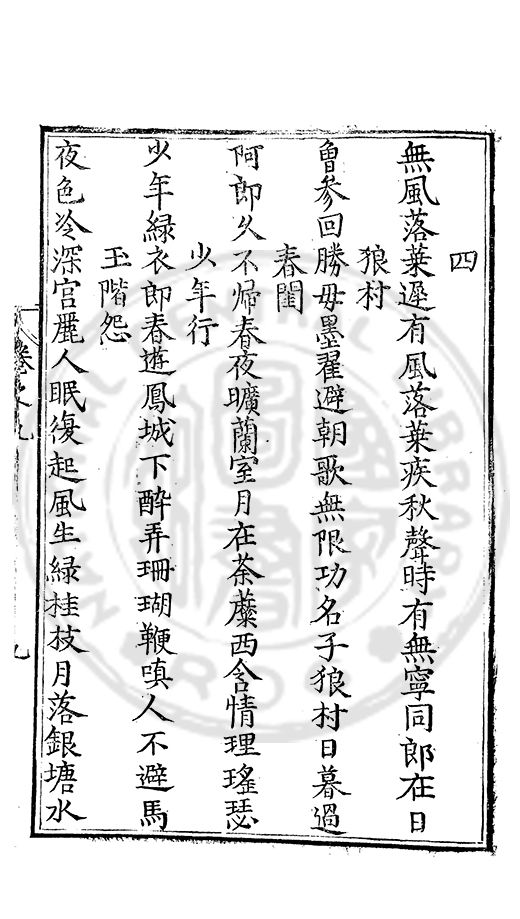 四
無風落葉遲有風落葉疾秋聲時有無寧同郎在日
狼村
曾參回勝毋墨翟避朝歌無限功名子狼村日暮過
春閨
阿郎久不歸春夜曠蘭室月在荼蘼西含情理瑤瑟
少年行
少年綠衣郎春遊鳳城下醉弄珊瑚鞭嗔人不避馬
玉階怨
夜色冷深宮麗人眠復起風生綠桂枝月落銀塘水
卷之九